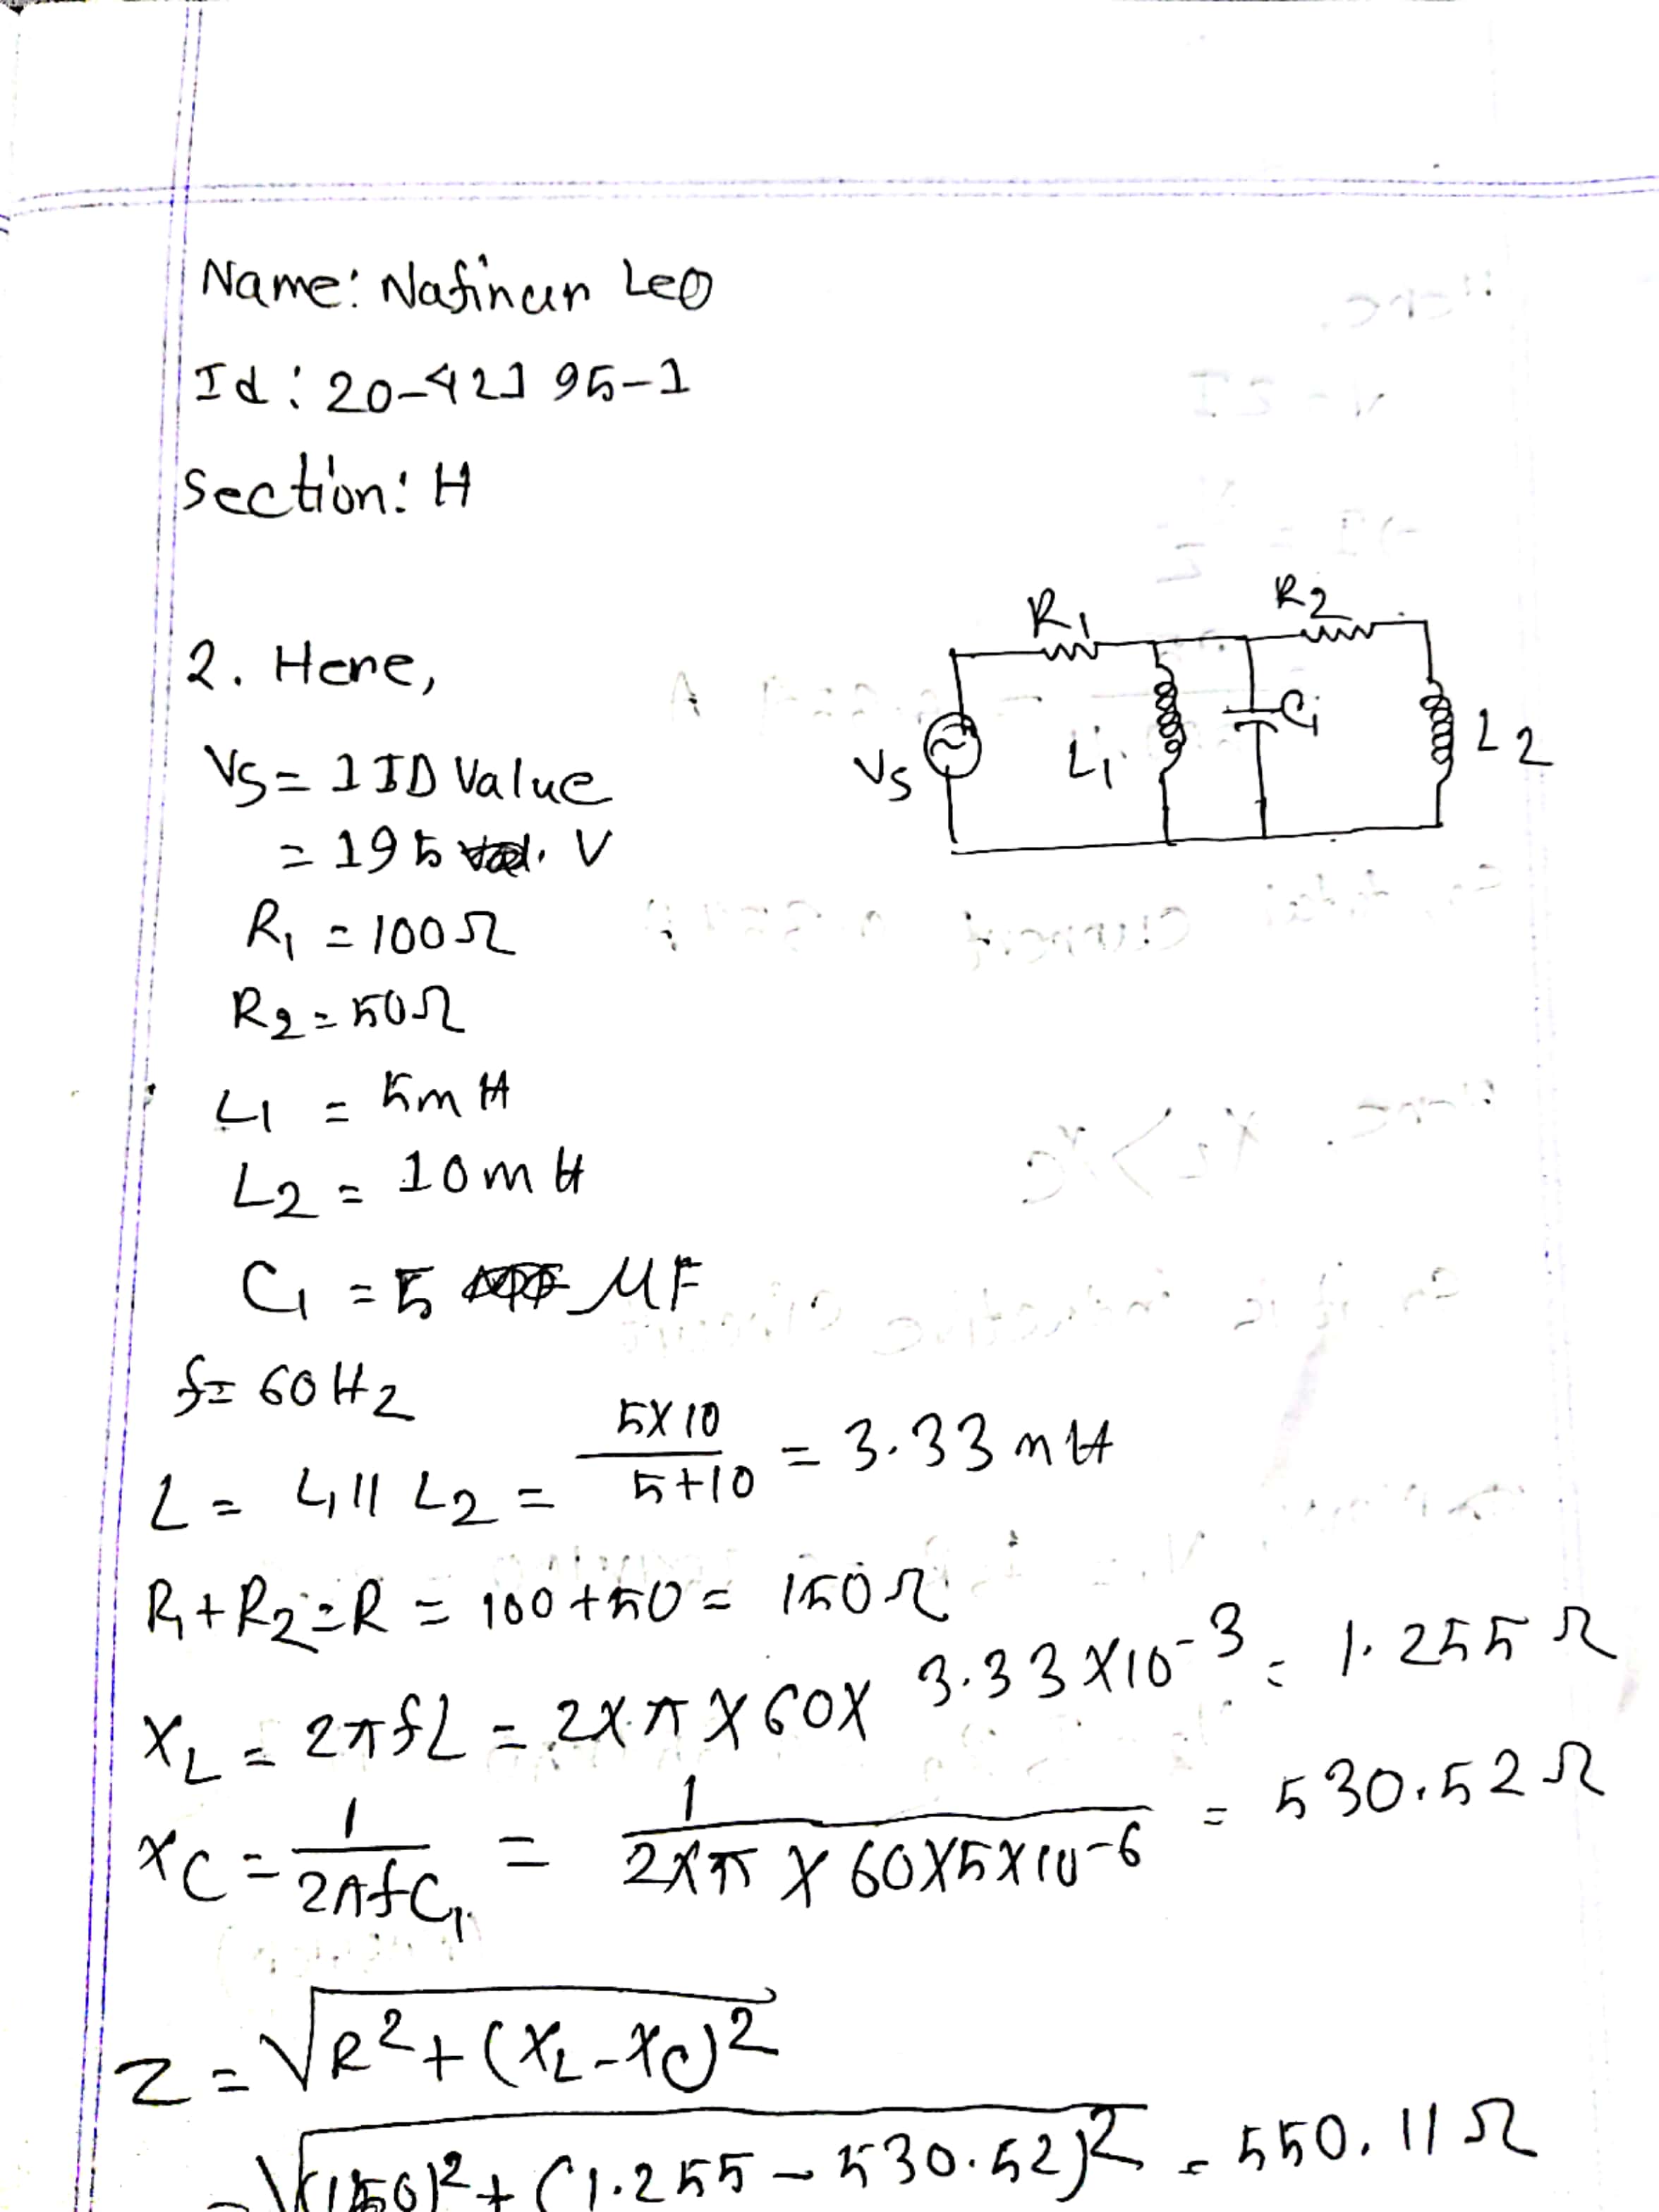 Name: Nafinur Leo
Id: 20-42195-1
Section: H
2. Here,
Vs = 1 ID Value
= 195 V
R1 = 100Ω
R2 = 50Ω
L1 = 5mH
L2 = 10mH
C1 = 5 MF
f = 60Hz
L = L1 || L2 = 5X10 / 5+10 = 3.33 mH
R1+R2=R = 100+50 = 150Ω
XL = 2πfL = 2XπX60X 3.33X10^-3 = 1.255Ω
XC = 1 / 2πfC1 = 1 / 2XπX60X5X10^-6 = 530.52Ω
Z = √R^2+(XL-XC)^2
= √(150)^2+(1.255-530.52)^2 = 550.11Ω
R1
R2
Vs
L1
C1
L2